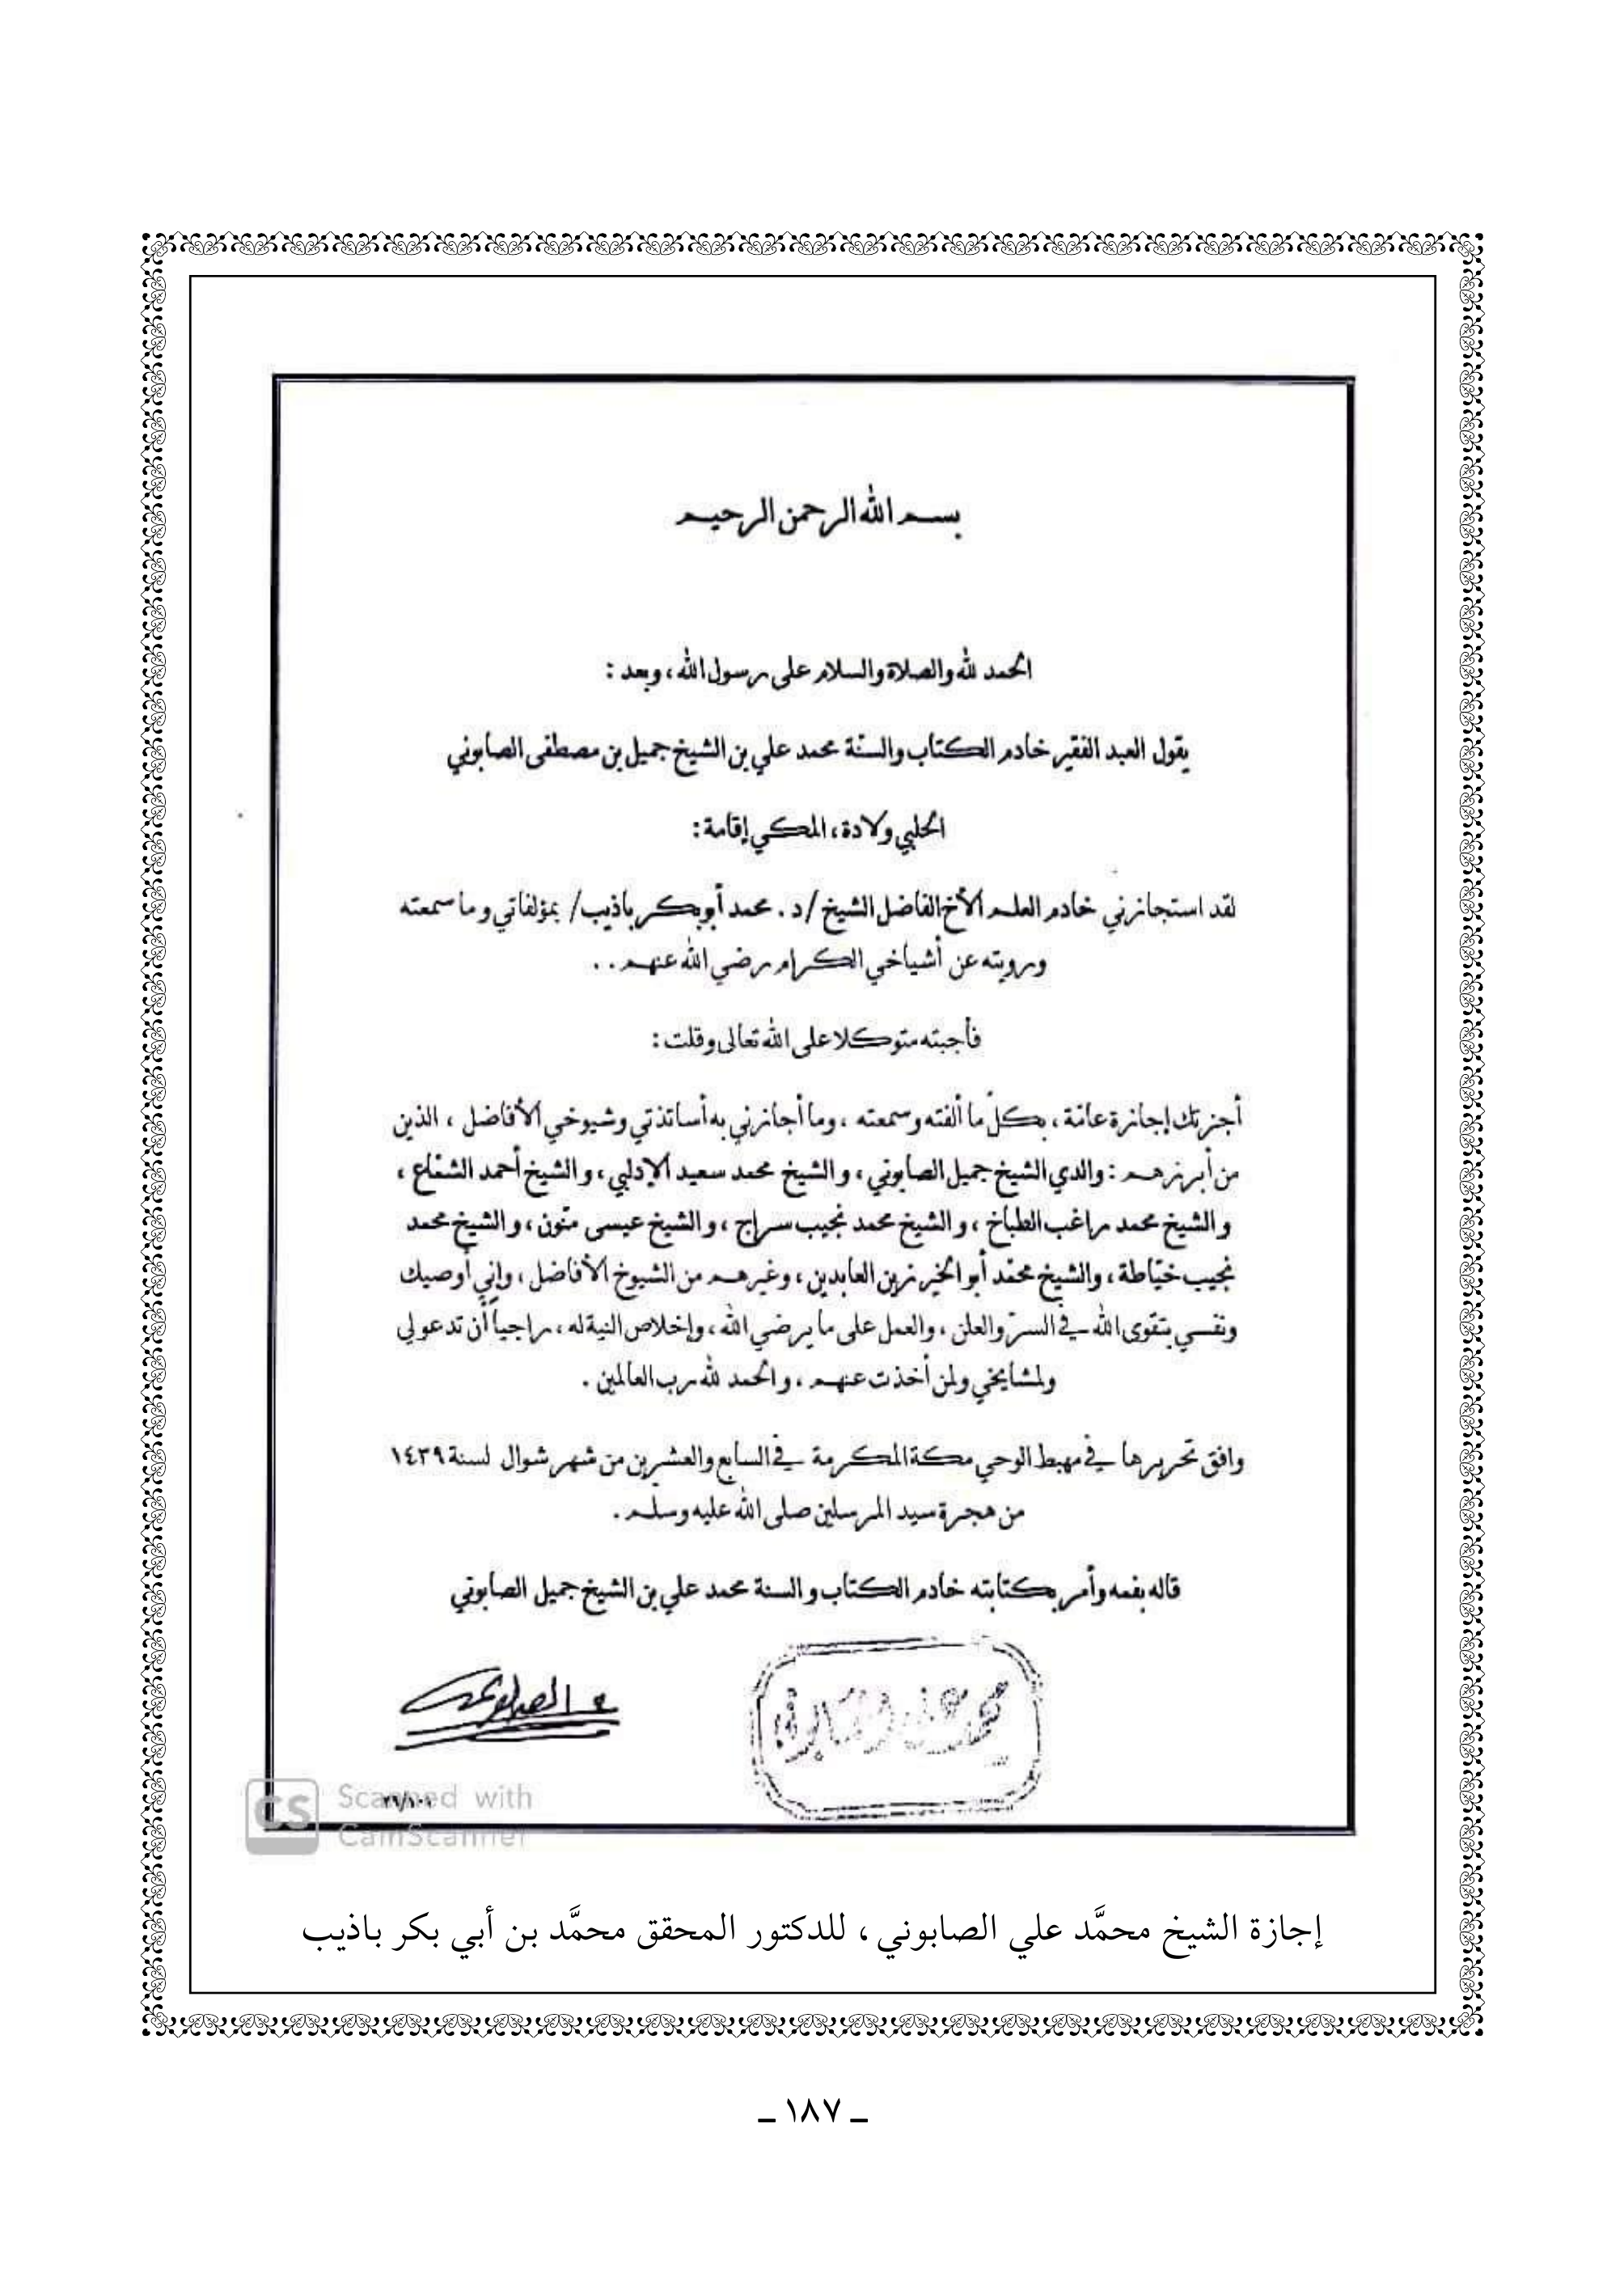 بسم الله الرحمن الرحيم
الحمد لله والصلاة والسلام على رسول الله، وبعد :
يقول العبد الفقير خادم الكتاب والسنّة محمد علي بن الشيخ جميل بن مصطفى الصابوني
الحلبي ولادة، المكي إقامة:
لقد استجازني خادم العلم الأخ الفاضل الشيخ /د. محمد أبوبكر باذيب/ بمؤلفاتي وما سمعته
ورويته عن أشياخي الكرام رضي الله عنهم..
فأجبته متوكلا على الله تعالى وقلت:
أجزتك إجازة عامّة، بكلّ ما ألفته وسمعته، وما أجازني به أساتذتي وشيوخي الأفاضل، الذين
من أبرزهم: والدي الشيخ جميل الصابوني، والشيخ محمد سعيد الإدلبي، والشيخ أحمد الشمّاع،
والشيخ محمد راغب الطباخ، والشيخ محمد نجيب سراج، والشيخ عيسى منّون، والشيخ محمد
نجيب خيّاطة، والشيخ محمّد أبو الخير زين العابدين، وغيرهم من الشيوخ الأفاضل، وإني أوصيك
ونفسي بتقوى الله في السرّ والعلن، والعمل على ما يرضي الله، وإخلاص النية له، راجياً أن تدعو لي
ولمشايخي ولمن أخذت عنهم، والحمد لله رب العالمين.
وافق تحريرها في مهبط الوحي مكة المكرمة في السابع والعشرين من شهر شوال لسنة ١٤٣٩
من هجرة سيد المرسلين صلى الله عليه وسلم.
قاله بفمه وأمر بكتابته خادم الكتاب والسنة محمد علي بن الشيخ جميل الصابوني
محمد علي الصابوني
CS Scanned with
CamScanner
إجازة الشيخ محمَّد علي الصابوني، للدكتور المحقق محمَّد بن أبي بكر باذيب
ـ ١٨٧ ـ